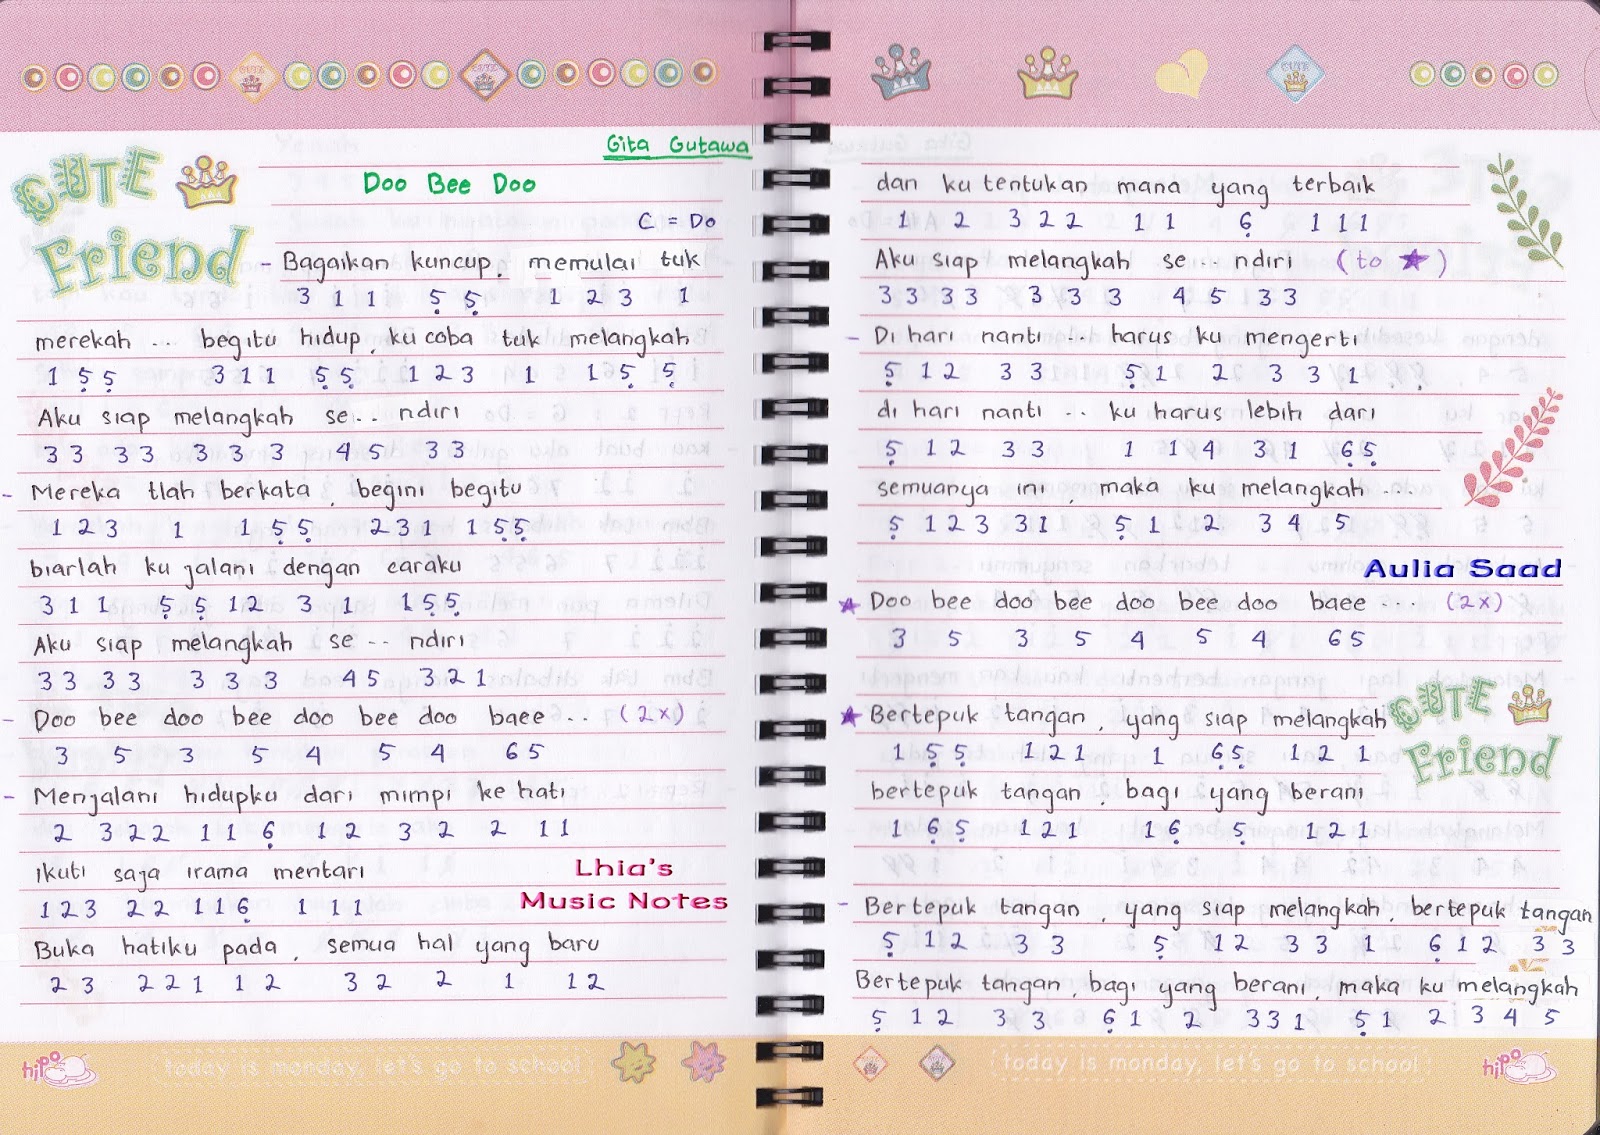 CUTE
Friend
Gita Gutawa
Doo Bee Doo
C = Do
- Bagaikan kuncup, memulai tuk
3 1 1 5̣ 5̣ 1 2 3 1
merekah ... begitu hidup, ku coba tuk melangkah
1 5̣ 5̣ 3 1 1 5̣ 5̣ 1 2 3 1 1 5̣ 5̣
Aku siap melangkah se... ndiri
3 3 3 3 3 3 3 4 5 3 3
- Mereka tlah berkata, begini begitu
1 2 3 1 1 5̣ 5̣ 2 3 1 1 5̣ 5̣
biarlah ku jalani dengan caraku
3 1 1 5̣ 5̣ 1 2 3 1 1 5̣ 5̣
Aku siap melangkah se... ndiri
3 3 3 3 3 3 3 4 5 3 2 1
- Doo bee doo bee doo bee doo baee .. (2x)
3 5 3 5 4 5 4 6 5
- Menjalani hidupku dari mimpi ke hati
2 3 2 2 1 1 6̣ 1 2 3 2 2 1 1
Ikuti saja irama mentari
1 2 3 2 2 1 1 6̣ 1 1 1
Lhia's
Music Notes
Buka hatiku pada, semua hal yang baru
2 3 2 2 1 1 2 3 2 2 1 1 2
hipo
today is monday, let's go to school
dan ku tentukan mana yang terbaik
1 2 3 2 2 1 1 6̣ 1 1 1
Aku siap melangkah se... ndiri (to ★)
3 3 3 3 3 3 3 4 5 3 3
- Di hari nanti ... harus ku mengerti
5̣ 1 2 3 3 5̣ 1 2 3 3 1
di hari nanti ... ku harus lebih dari
5̣ 1 2 3 3 1 1 4 3 1 6̣ 5̣
semuanya ini, maka ku melangkah ...
5̣ 1 2 3 3 1 5̣ 1 2 3 4 5
Aulia Saad
★ Doo bee doo bee doo bee doo baee ... (2x)
3 5 3 5 4 5 4 6 5
★ Bertepuk tangan, yang siap melangkah
1 5̣ 5̣ 1 2 1 1 6̣ 5̣ 1 2 1
CUTE
Friend
bertepuk tangan, bagi yang berani
1 6̣ 5̣ 1 2 1 1 6̣ 5̣ 1 2 1
- Bertepuk tangan, yang siap melangkah, bertepuk tangan
5̣ 1 2 3 3 5̣ 1 2 3 3 1 6̣ 1 2 3 3
Bertepuk tangan, bagi yang berani, maka ku melangkah
5̣ 1 2 3 3 6̣ 1 2 3 3 1 5̣ 1 2 3 4 5
today is monday, let's go to school
hipo